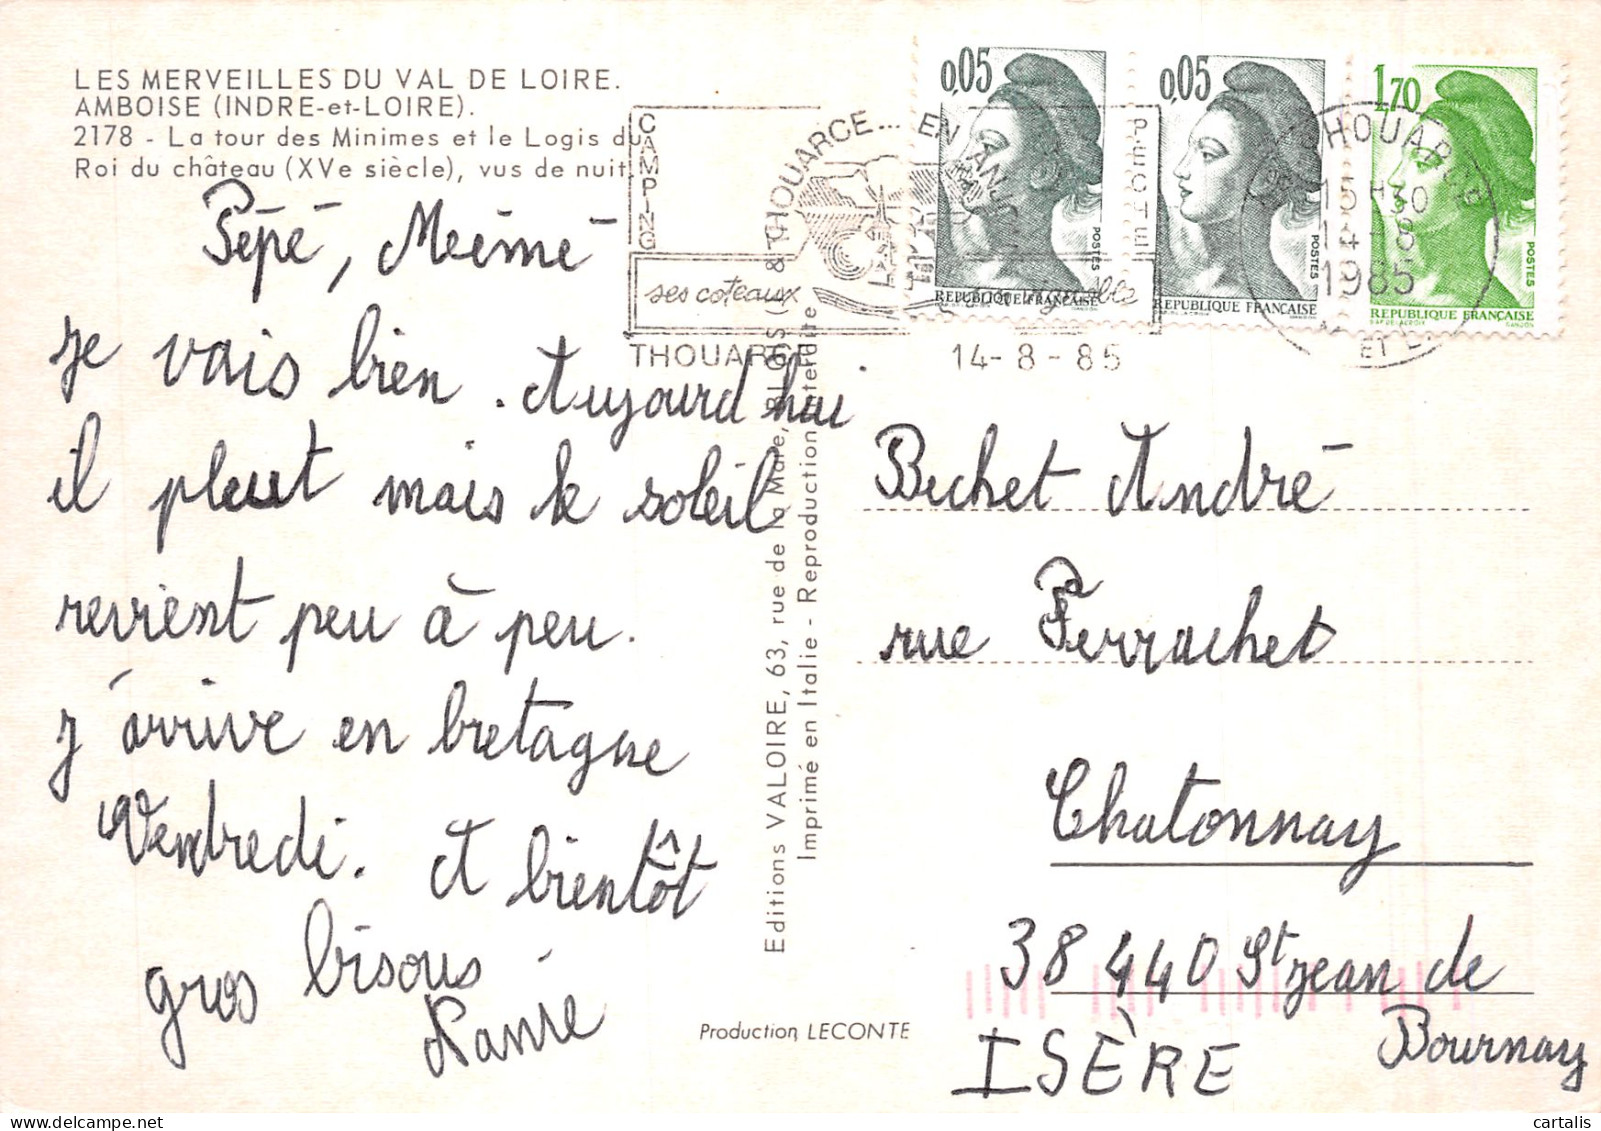 LES MERVEILLES DU VAL DE LOIRE.
AMBOISE (INDRE-et-LOIRE).
2178 - La tour des Minimes et le Logis du
Roi du château (XVe siècle), vus de nuit.
Pépé, Mémé
je vais bien. Aujourd hui
il pleut mais le soleil
revient peu à peu.
j'arrive en bretagne
Vendredi. A bientôt
gros bisous
CAMPING
THOUARCE... EN ANJOU
ses coteaux
THOUARCE
14-8-85
Editions VALOIRE, 63, rue de la Mare, BLOIS (
& THOUARCE
Imprimé en Italie - Reproduction interdite
Production LECONTE
0,05
POSTES
REPUBLIQUE FRANÇAISE
0,05
POSTES
REPUBLIQUE FRANÇAISE
1,70
POSTES
REPUBLIQUE FRANÇAISE
THOUARCE
15H30
14-8
1985
ET L.
Bechet André
rue Perrachet
Chatonnay
38 440 St jean de
Bournay
ISÈRE
cartalis
© cartalis | Delcampe.net